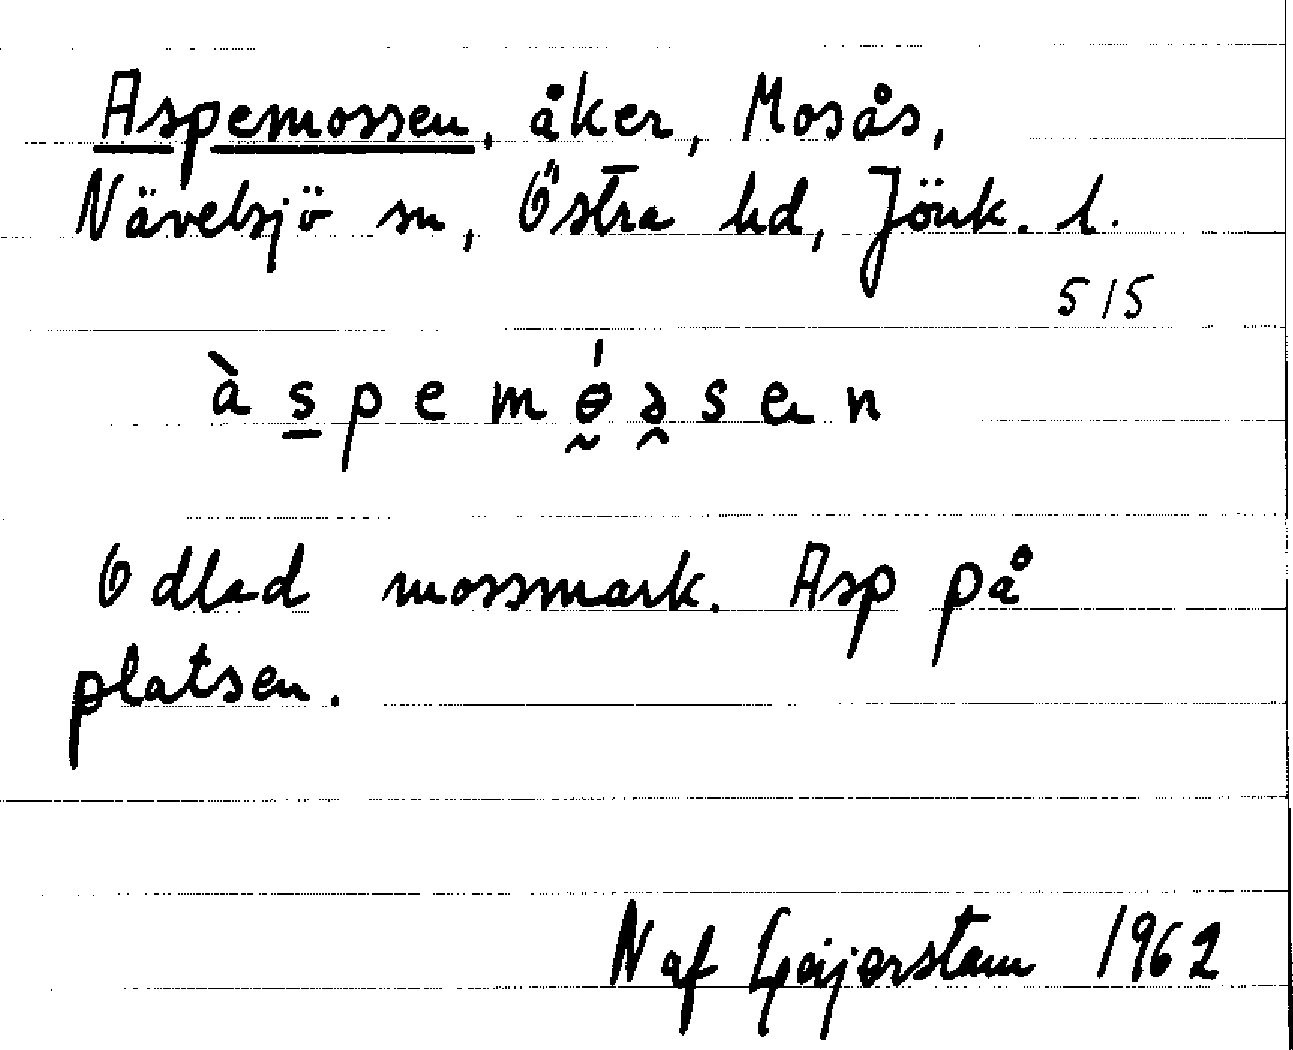 Aspemossen, åker, Mosås,
Nävelsjö sn, Östra hd, Jönk. l.
5/5
à s̲ p e m ө̰́ ə̯ s e n
Odlad mossmark. Asp på
platsen.
N af Geijerstam 1962